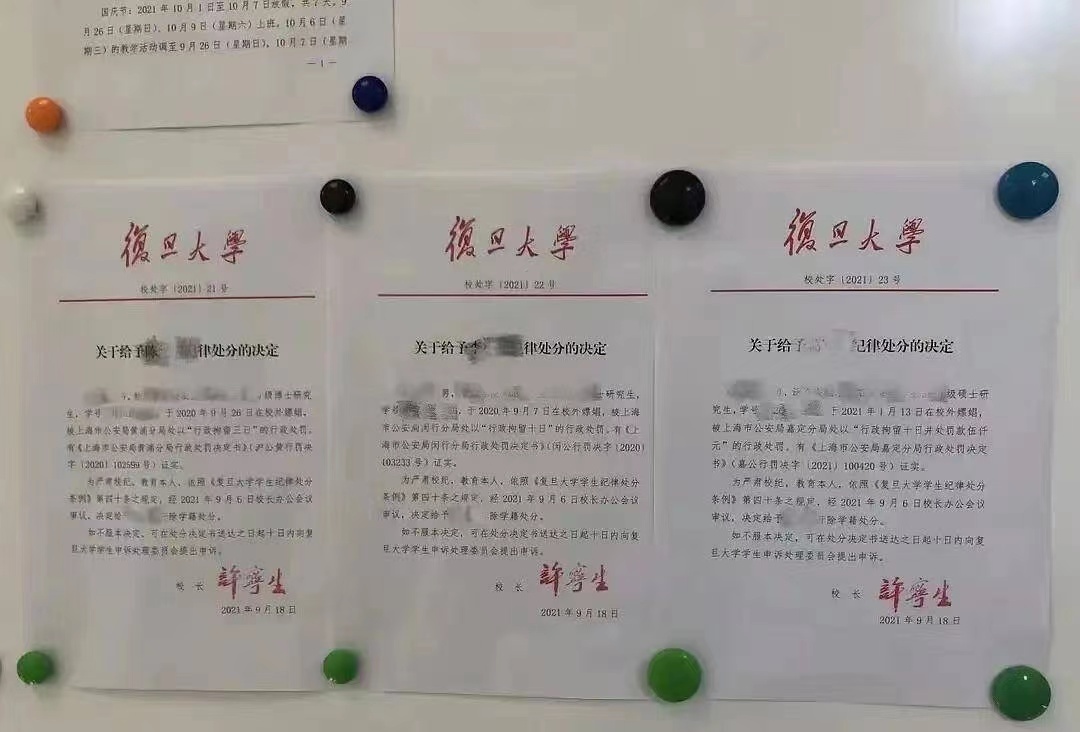 国庆节：2021年10月1日至10月7日放假，共7天。9
月26日（星期日）、10月9日（星期六）上班。10月6日（星
期三）的教学活动调至9月26日（星期日），10月7日（星期
—1—
復旦大學
校处字〔2021〕21号
关于给予陈 律处分的决定
级博士研究
生，学号 于2020年9月26日在校外嫖娼，
被上海市公安局黄浦分局处以“行政拘留三日”的行政处罚，
有《上海市公安局黄浦分局行政处罚决定书》（沪公黄行罚决
字〔2020〕102599号）证实。
为严肃校纪，教育本人，依照《复旦大学学生纪律处分
条例》第四十条之规定，经2021年9月6日校长办公会议
审议，决定给 除学籍处分。
如不服本决定，可在处分决定书送达之日起十日内向复
旦大学学生申诉处理委员会提出申诉。
校 长 許寧生
2021年9月18日
復旦大學
校处字〔2021〕22号
关于给予李 律处分的决定
男， 士研究生，
学号 ，于2020年9月7日在校外嫖娼，被上海
市公安局闵行分局处以“行政拘留十日”的行政处罚，有《上
海市公安局闵行分局行政处罚决定书》（闵公行罚决字〔2020〕
103233号）证实。
为严肃校纪，教育本人，依照《复旦大学学生纪律处分
条例》第四十条之规定，经2021年9月6日校长办公会议
审议，决定给予 除学籍处分。
如不服本决定，可在处分决定书送达之日起十日内向复
旦大学学生申诉处理委员会提出申诉。
校 长 許寧生
2021年9月18日
復旦大學
校处字〔2021〕23号
关于给予 纪律处分的决定
级硕士研
究生，学号 于2021年1月13日在校外嫖娼，
被上海市公安局嘉定分局处以“行政拘留十日并处罚款伍仟
元”的行政处罚，有《上海市公安局嘉定分局行政处罚决定
书》（嘉公行罚决字〔2021〕100420号）证实。
为严肃校纪，教育本人，依照《复旦大学学生纪律处分
条例》第四十条之规定，经2021年9月6日校长办公会议
审议，决定给予 除学籍处分。
如不服本决定，可在处分决定书送达之日起十日内向复
旦大学学生申诉处理委员会提出申诉。
校 长 許寧生
2021年9月18日